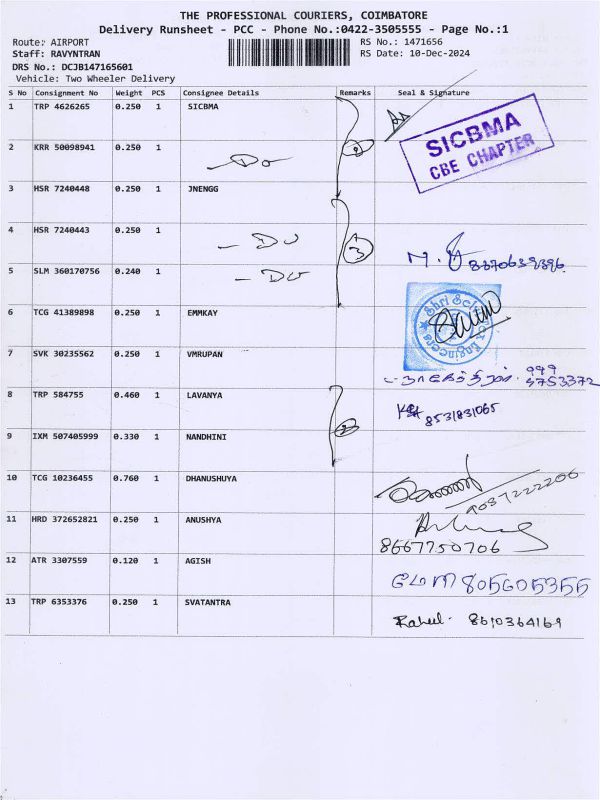 THE PROFESSIONAL COURIERS, COIMBATORE
Delivery Runsheet - PCC - Phone No.:0422-3505555 - Page No.:1
Route: AIRPORT RS No.: 1471656
Staff: RAVYNTRAN RS Date: 10-Dec-2024
DRS No.: DCJB147165601
Vehicle: Two Wheeler Delivery
S No Consignment No Weight PCS Consignee Details Remarks Seal & Signature
1 TRP 4626265 0.250 1 SICBMA
SICBMA
CBE CHAPTER
2 KRR 50098941 0.250 1
-Do
3 HSR 7240448 0.250 1 JNENGG
4 HSR 7240443 0.250 1
-Do 3
5 SLM 360170756 0.240 1
-Do
6 TCG 41389898 0.250 1 EMMKAY
7 SVK 30235562 0.250 1 VMRUPAN
8 TRP 584755 0.460 1 LAVANYA
8531831065
9 IXM 507405999 0.330 1 NANDHINI
10 TCG 10236455 0.760 1 DHANUSHUYA
9087222206
11 HRD 372652821 0.250 1 ANUSHYA
8667750706
12 ATR 3307559 0.120 1 AGISH
13 TRP 6353376 0.250 1 SVATANTRA
Rahul. 8610364169